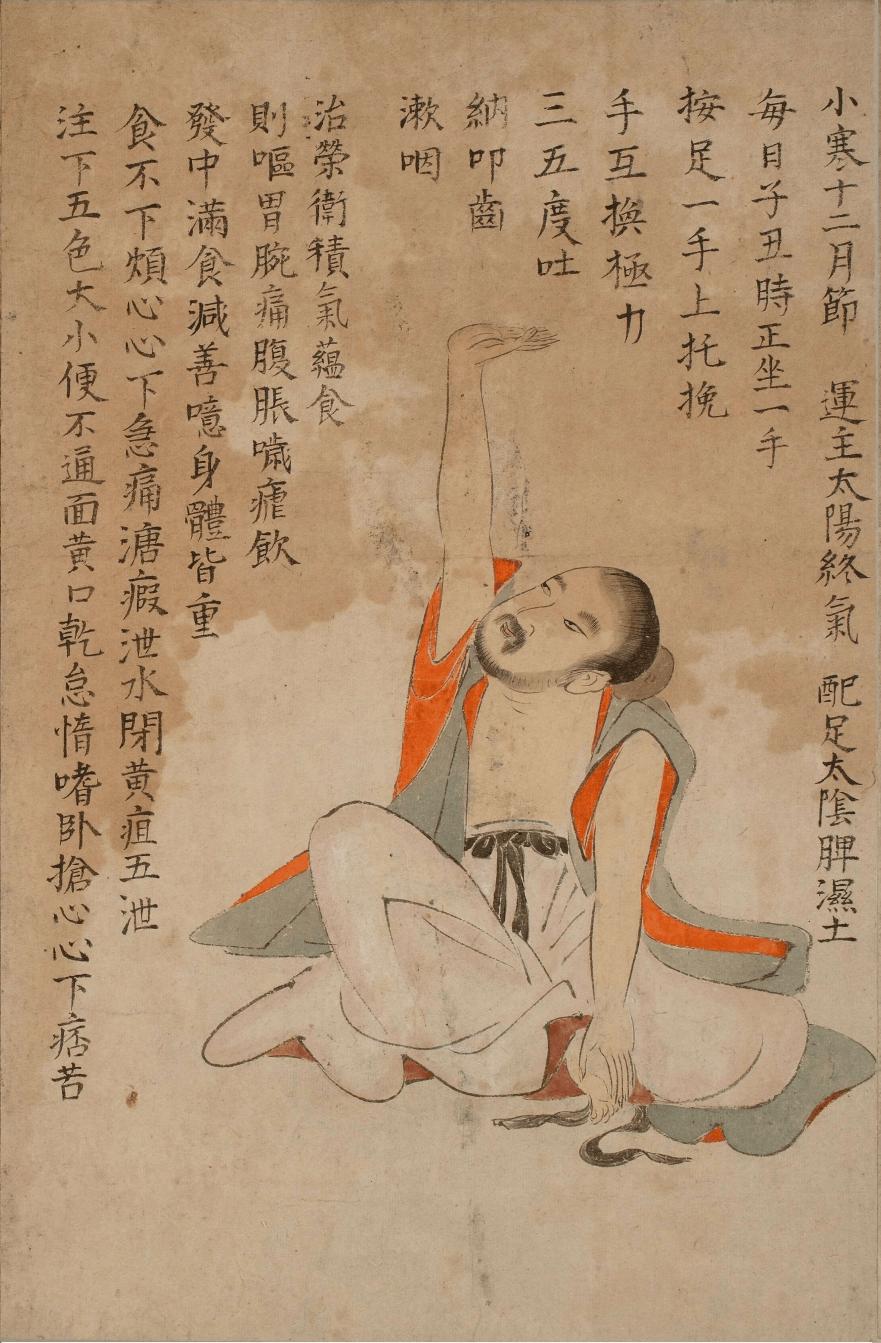 小寒十二月節 運主太陽終氣 配足太陰脾濕土
每日子丑時正坐一手
按足一手上托挽
手互換極力
三五度吐
納叩齒
漱咽
治榮衛積氣蘊食
則嘔胃脘痛腹脹噦瘧飲
發中滿食減善噫身體皆重
食不下煩心心下急痛溏瘕泄水閉黃疸五泄
注下五色大小便不通面黃口乾怠惰嗜卧搶心心下痞苦